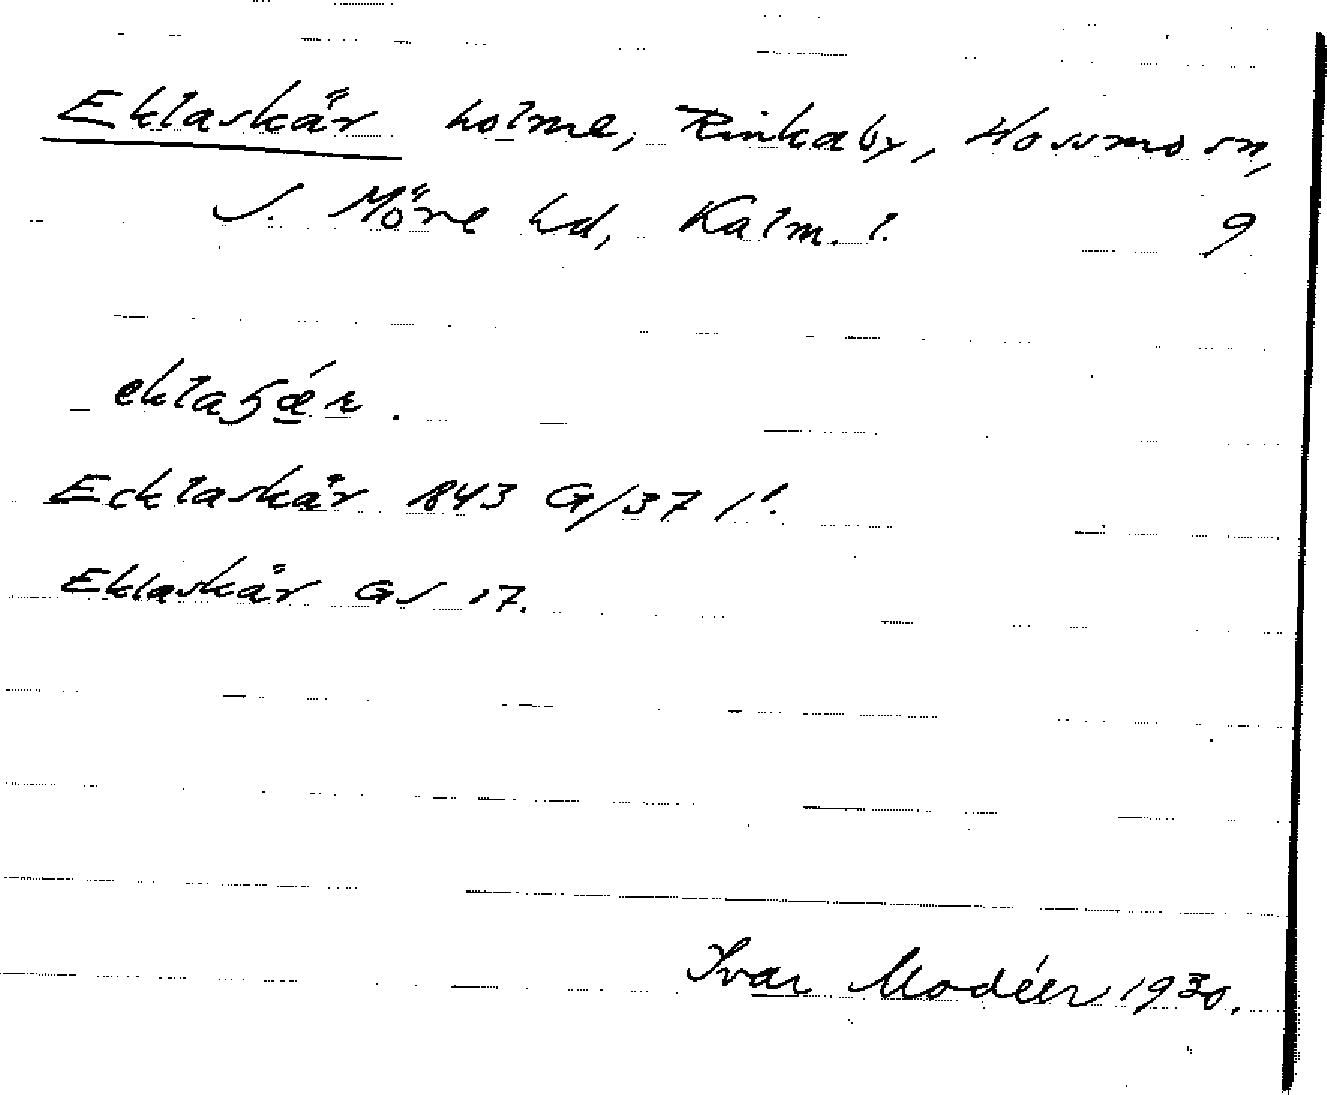 Eklaskär holme, Rinkaby, Hossmo sn,
S. Möre hd, Kalm. l. 9
eklaʂǽr.
Ecklaskär 1843 G/37 1!
Eklaskär GS 17.
Ivar Modéer 1930.